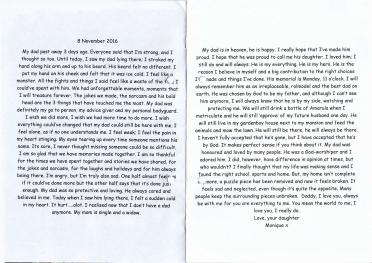 8 November 2016
My dad past away 3 days ago. Everyone said that I'm strong, and I
thought so too. Until today, I saw my dad lying there; I stroked my
hand along his arm and up to his beard. His beard felt no different. I
put my hand on his cheek and felt that it was ice cold. I feel like a
monster. All the fights and things I said feel like a waste of the
could've spent with him. We had unforgettable moments, moments that
I will treasure forever. The jokes we made, the sarcasm and his bald
head are the 3 things that have touched me the most. My dad was
definitely my go to person, my advice giver and my personal bodyguard.
I wish we did more, I wish we had more time to do more. I wish
everything could've changed that my dad could still be here with me. I
feel alone, as if no one understands me. I feel weak; I feel the pain in
my heart stinging. My eyes tearing up every time someone mentions his
name. Its sore, I never thought missing someone could be so difficult.
I am so glad that we have memories made together. I am so thankful
for the times we have spent together and stories we have shared, for
the jokes and sarcasm, for the laughs and holidays and for him always
being there. I'm angry, but I'm truly also sad. One half almost feels
if it could've done more but the other half says that it's done just
enough. My dad was so protective and loving. He always cared and
believed in me. Today when I saw him lying there, I felt a sudden cold
in my heart. It hurt a lot. I realised now that I don't have a dad
anymore. My mom is single and a widow.
My dad is in heaven, he is happy. I really hope that I've made him
proud. I hope that he was proud to call me his daughter. I loved him; I
still do and will always. He is my everything. He is my hero. He is the
reason I believe in myself and a big contribution to the right choices
I made and things I've done. His memorial is Monday, 11 o'clock. I will
always remember him as an irreplaceable, rolmodel and the best dad on
earth. He was chosen by God to be my father, and although I can't see
him anymore, I will always know that he is by my side, watching and
protecting me. We will still drink a bottle of Amarula when I
matriculate and he will still approve of my future husband one day. He
will still live in my grandaday house next to my mansion and feed the
animals and mow the lawn. He will still be there, he will always be there.
I haven't fully accepted that he's gone, but I have accepted that he's
by God. It makes perfect sense if you think about it. My dad was
honoured and loved by many people. He was a God-worshiper and I
adored him. I did, however, have difference in opinion at times, but
who wouldn't? I finally thought that my life was making sense and I
found the right school, sports and home. But, my home isn't complete
more, a puzzle piece has been removed and now it feels broken. It
feels sad and neglected, even though it's quite the opposite. Many
people keep the surrounding pieces unbroken. Daddy, I love you, always
be with me for you are everything to me. You mean the world to me, I
love you, I really do.
Love, your daughter
Monique x